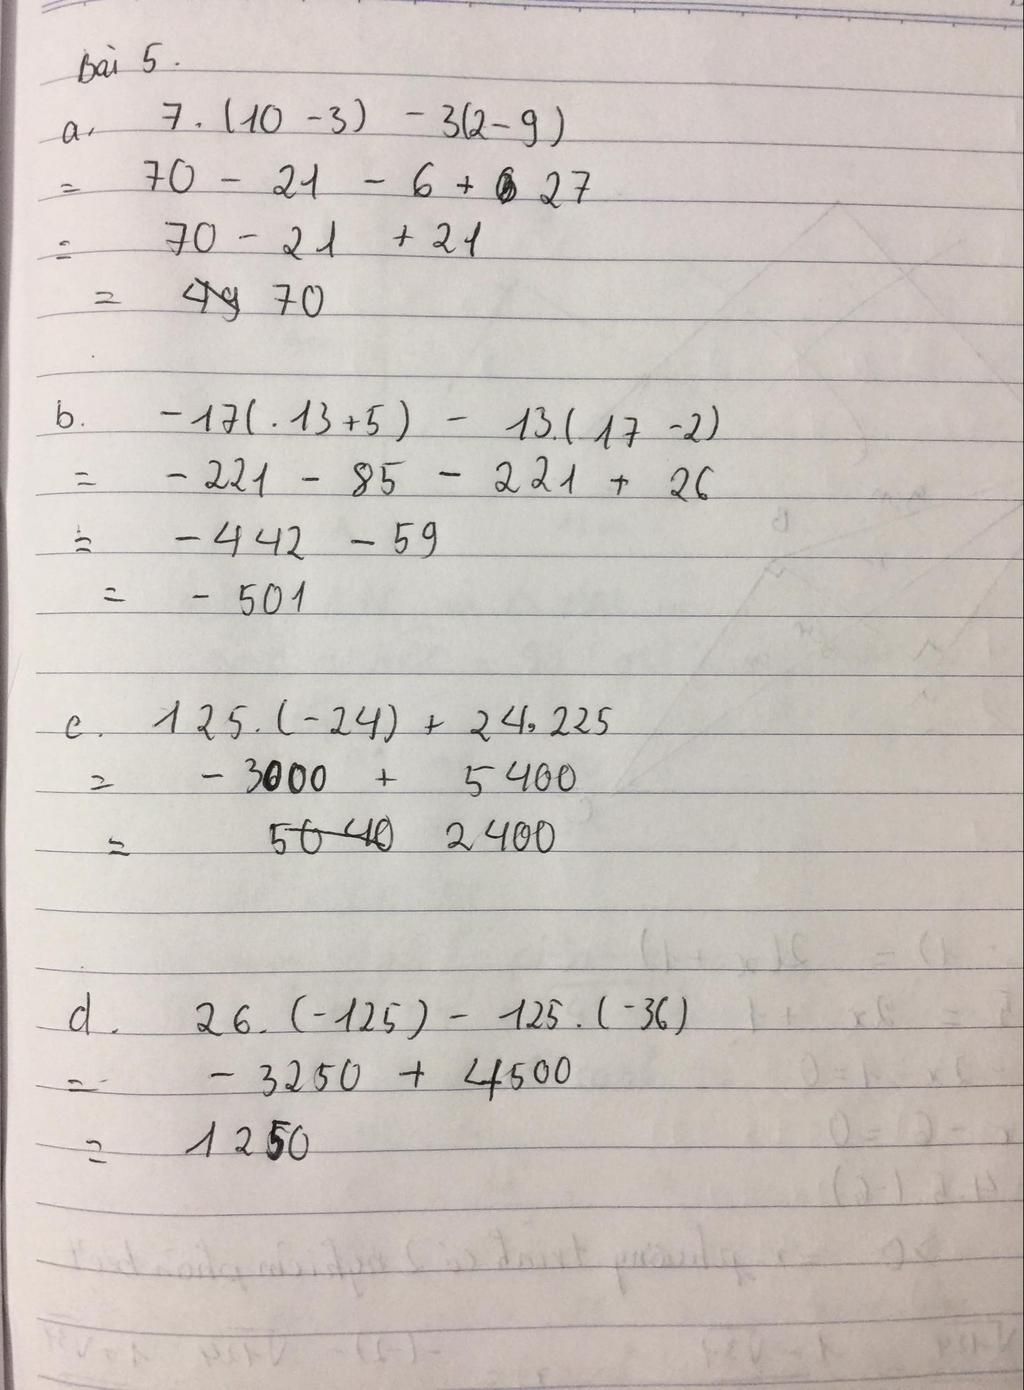 Bài 5.
a. 7.(10 -3) - 3(2-9)
= 70 - 21 - 6 + 27
= 70 - 21 + 21
= 49 70
b. -17(.13+5) - 13.(17 -2)
= -221 - 85 - 221 + 26
= -442 - 59
= - 501
c. 125.(-24) + 24.225
= - 3000 + 5400
= 5040 2400
d. 26.(-125) - 125.(-36)
= - 3250 + 4500
= 1250